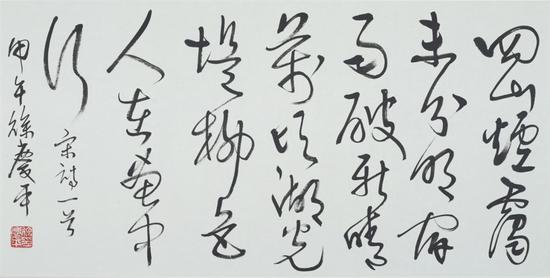 四山煙靄
未分明宿
雨破新晴
萬頃湖光
堤柳色
人在畫中
行
宋詩一首
甲午徐慶平